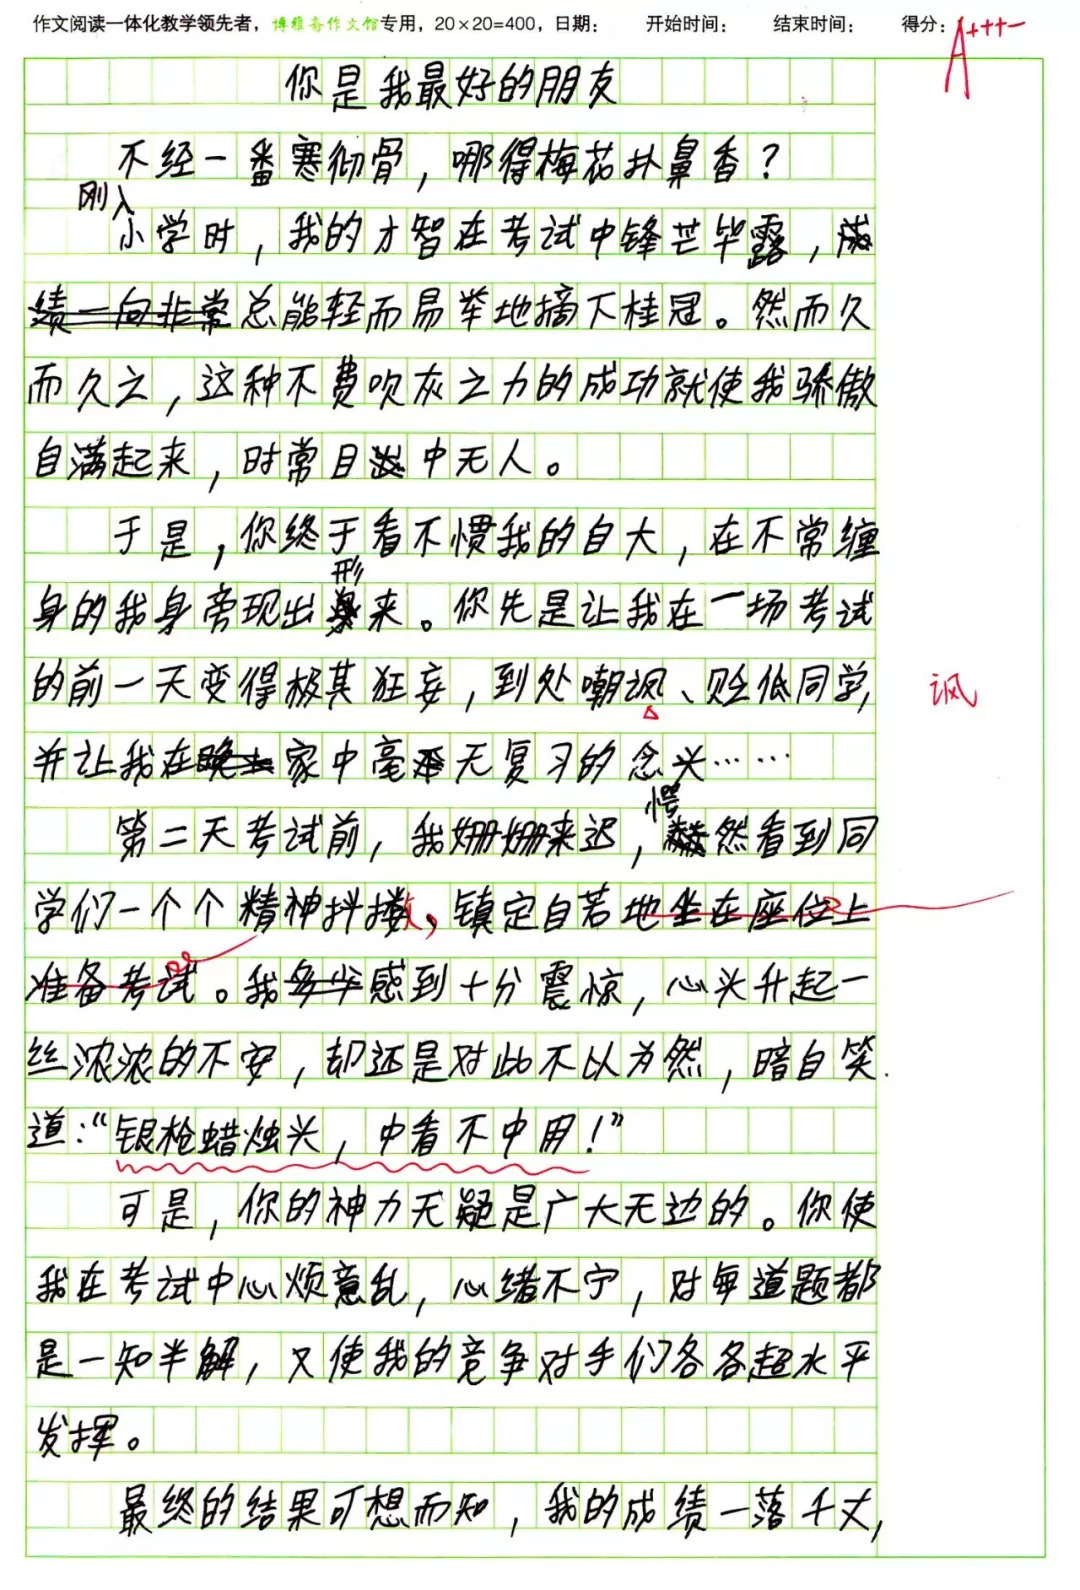 作文阅读一体化教学领先者，博雅斋作文馆专用，20×20=400，日期： 开始时间： 结束时间： 得分：A+++-
你是我最好的朋友
不经一番寒彻骨，哪得梅花扑鼻香？
刚入
小学时，我的才智在考试中锋芒毕露，成
绩一向非常总能轻而易举地摘下桂冠。然而久
而久之，这种不费吹灰之力的成功就使我骄傲
自满起来，时常目中无人。
于是，你终于看不惯我的自大，在不常缠
形
身的我身旁现出来。你先是让我在一场考试
的前一天变得极其狂妄，到处嘲讽、贬低同学，
讽
并让我在晚上家中毫无复习的念头……
愕
第二天考试前，我姗姗来迟，然看到同
学们一个个精神抖擞，镇定自若地坐在座位上
准备考试。我多半感到十分震惊，心头升起一
丝浓浓的不安，却还是对此不以为然，暗自笑
道：“银枪蜡烛头，中看不中用！”
可是，你的神力无疑是广大无边的。你使
我在考试中心烦意乱，心绪不宁，对每道题都
是一知半解，又使我的竞争对手们各各超水平
发挥。
最终的结果可想而知，我的成绩一落千丈，